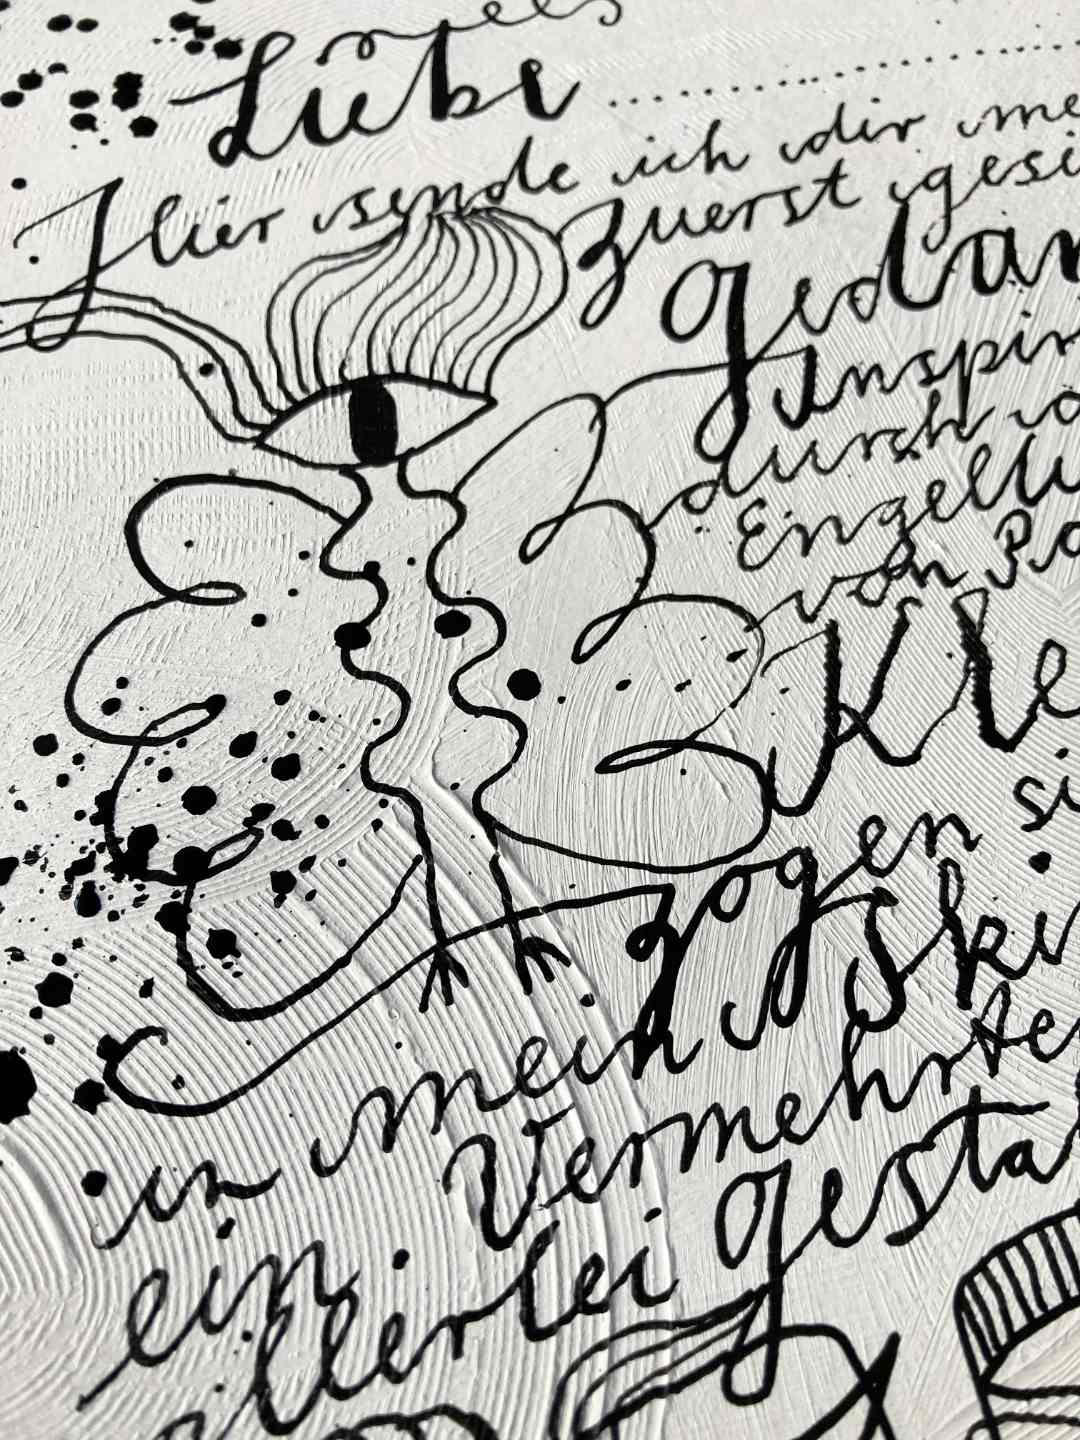 Liebe
Hier sende ich dir me
zuerst gesi
gedan
Inspir
durch
Engell
von Pa
Kle
zogen si
Ski
in mein
Vermehrte
ein
allerlei gesta